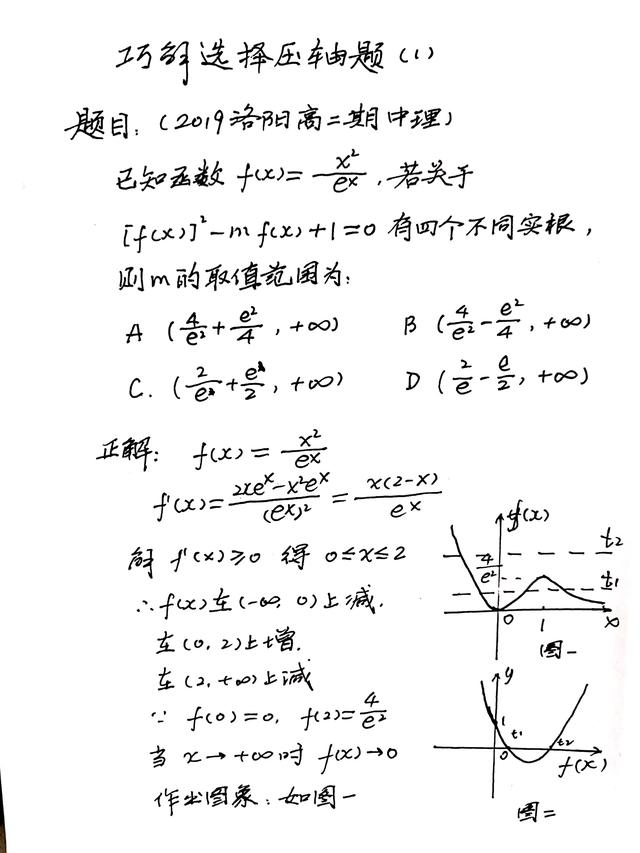 巧解选择压轴题(1)
题目:(2019洛阳高二期中理)
已知函数 f(x)=x²/eˣ,若关于
[f(x)]²-mf(x)+1=0 有四个不同实根,
则m的取值范围为:
A (4/e²+e²/4, +∞) B (4/e²-e²/4, +∞)
C. (2/e+e/2, +∞) D (2/e-e/2, +∞)
正解: f(x)=x²/eˣ
f'(x)=(2xeˣ-x²eˣ)/(eˣ)²=x(2-x)/eˣ
解 f'(x)≥0 得 0≤x≤2
∴f(x)在(-∞, 0)上减.
在(0, 2)上增.
在(2, +∞)上减
∵ f(0)=0, f(2)=4/e²
当 x→+∞时 f(x)→0
作出图象:如图一
f(x)
t₂
4/e²
t₁
0 1 x
图一
y
1 t₁ t₂
0 f(x)
图二